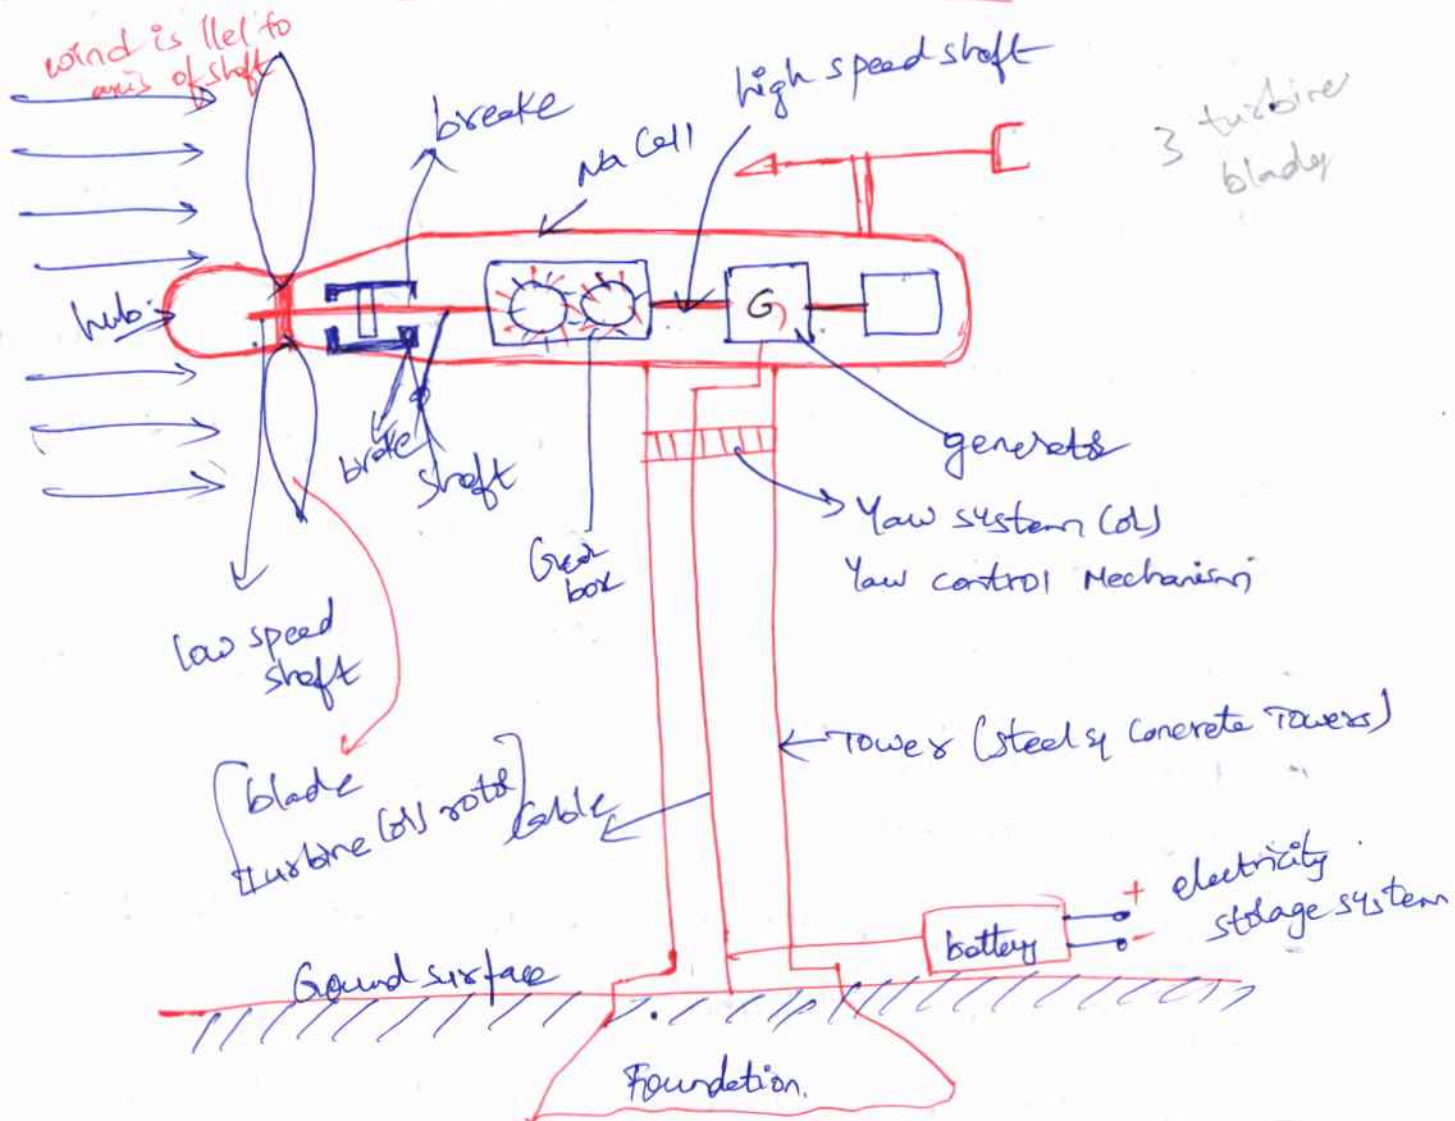 wind is llel to
axis of shaft
breake
Na Cell
high speed shaft
3 turbine
blady
hub
G
brake
shaft
Gear
box
generator
Yaw system (or)
Yaw control Mechanism
low speed
shaft
blade
turbine (or) rotor
Cable
Tower (steel & Concrete Towers)
+
-
electricity
storage system
battery
Ground surface
Foundation.